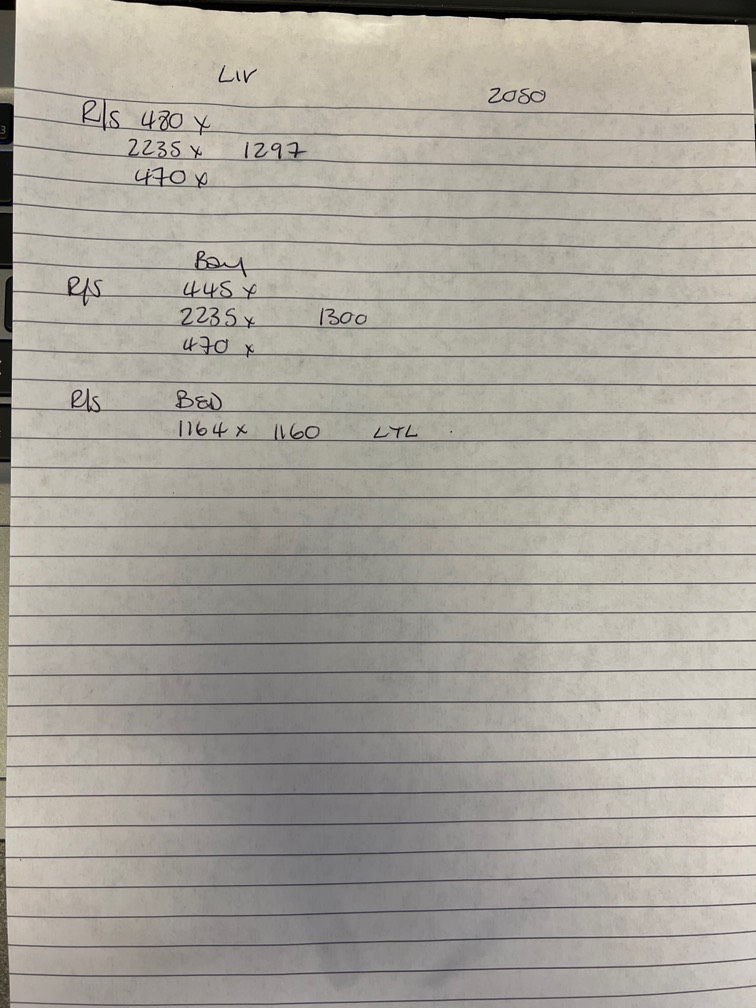 LIV
2050
R/S 480 x
2235 x 1297
470 x
Bay
R/S 445 x
2235 x 1300
470 x
R/S BED
1164 x 1160 LTL